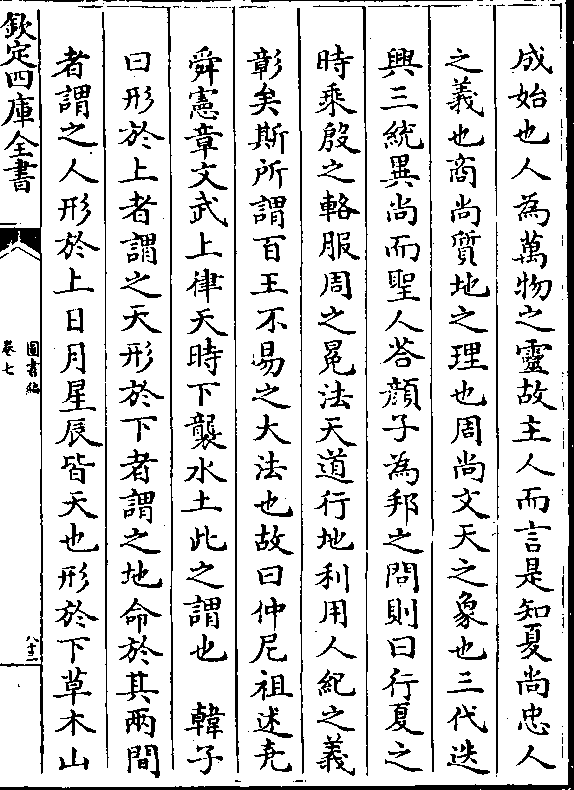 成始也人為萬物之靈故主人而言是知夏尚忠人
之義也商尚質地之理也周尚文天之象也三代迭
興三統異尚而聖人荅顔子為邦之問則曰行夏之
時乘殷之輅服周之冕法天道行地利用人紀之義
彰矣斯所謂百王不易之大法也故曰仲尼祖述堯
舜憲章文武上律天時下襲水土此之謂也　韓子
曰形於上者謂之天形於下者謂之地命於其兩間
者謂之人形於上日月星辰皆天也形於下草木山
欽定四庫全書
圖書編
卷七
八十二